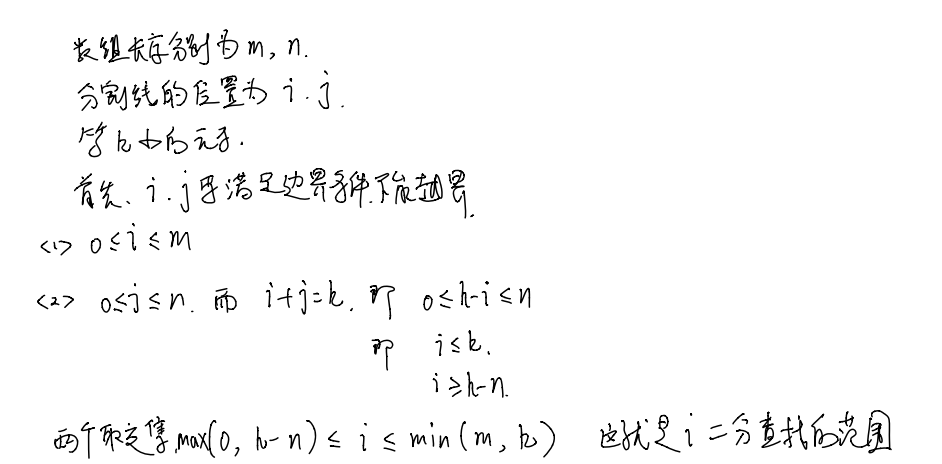 数组长度分别为 m, n.
分割线的位置为 i. j.
第 k 小的元素.
首先、i. j 要满足边界条件.不能越界.
<1> 0 ≤ i ≤ m
<2> 0 ≤ j ≤ n. 而 i+j=k. 即 0 ≤ k-i ≤ n
即 i ≤ k.
i ≥ k-n.
两个取交集 max(0, k-n) ≤ i ≤ min(m, k) 这就是 i 二分查找的范围